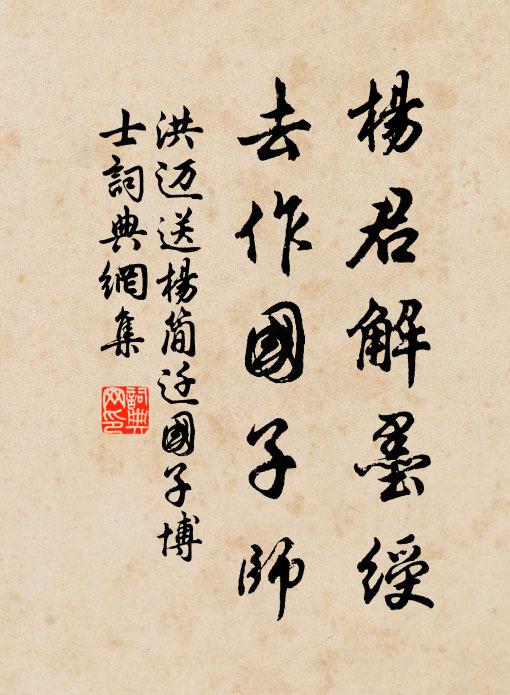 楊君解墨綬
去作國子師
洪迈送楊簡迁國子博
士詞典網集
詞典网印